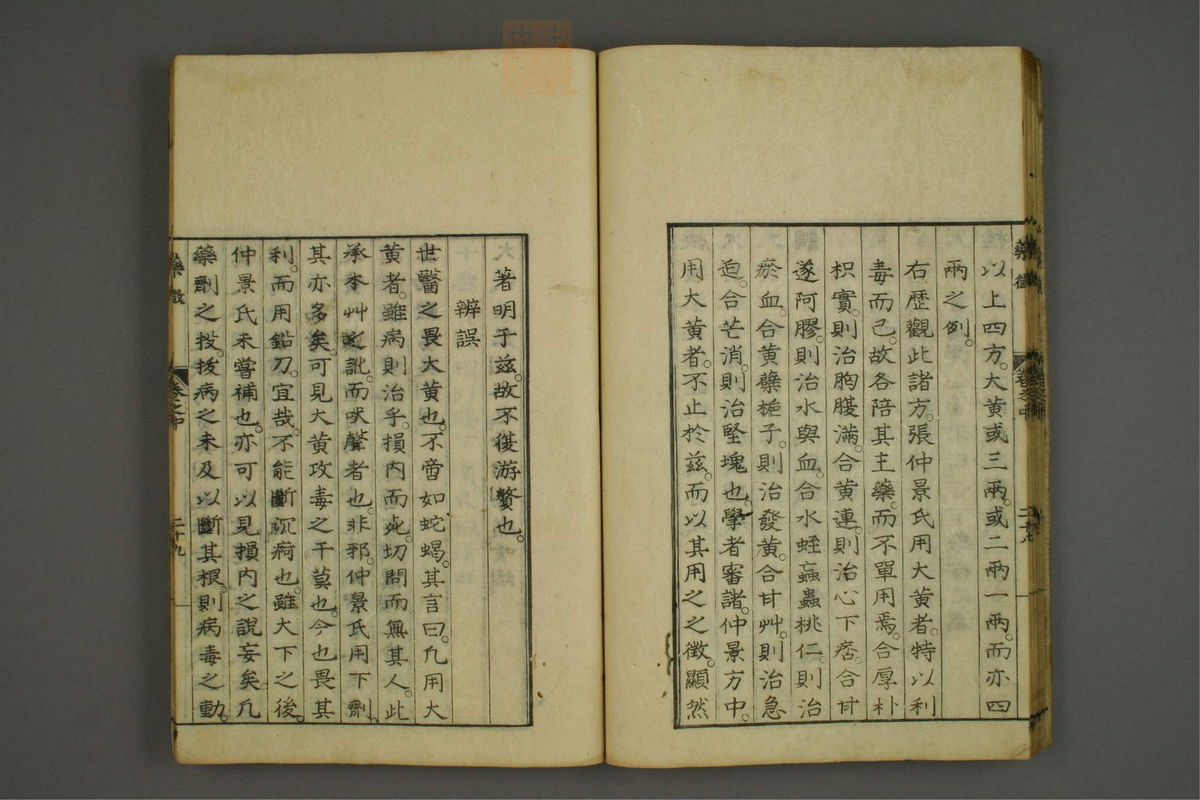 以上四方。大黄或三兩。或二兩一兩。而亦四
兩之例。
右歷觀此諸方。張仲景氏用大黄者。特以利
毒而已。故各陪其主藥。而不單用焉。合厚朴
枳實。則治胸腹滿。合黄連。則治心下痞。合甘
遂阿膠。則治水與血。合水蛭蝱蟲桃仁。則治
瘀血。合黄蘗梔子。則治發黄。合甘艸。則治急
迫。合芒消。則治堅塊也。學者審諸。仲景方中。
用大黄者。不止於茲。而以其用之之徵。顯然
藥徵
卷之中
二十八
大著明于茲。故不復游贅也。
辨誤
世醫之畏大黄也。不啻如蛇蝎。其言曰。凡用大
黄者。雖病則治乎。損内而死。切問而無其人。此
承本艸之訛。而吠聲者也。非邪。仲景氏用下劑。
其亦多矣。可見大黄攻毒之干莫也。今也畏其
利。而用鉛刀。宜哉。不能斷沉痾也。雖大下之後。
仲景氏未嘗補也。亦可以見損内之說妄矣。凡
藥劑之投。拔病之未及以斷其根。則病毒之動。
藥徵
卷之中
二十九